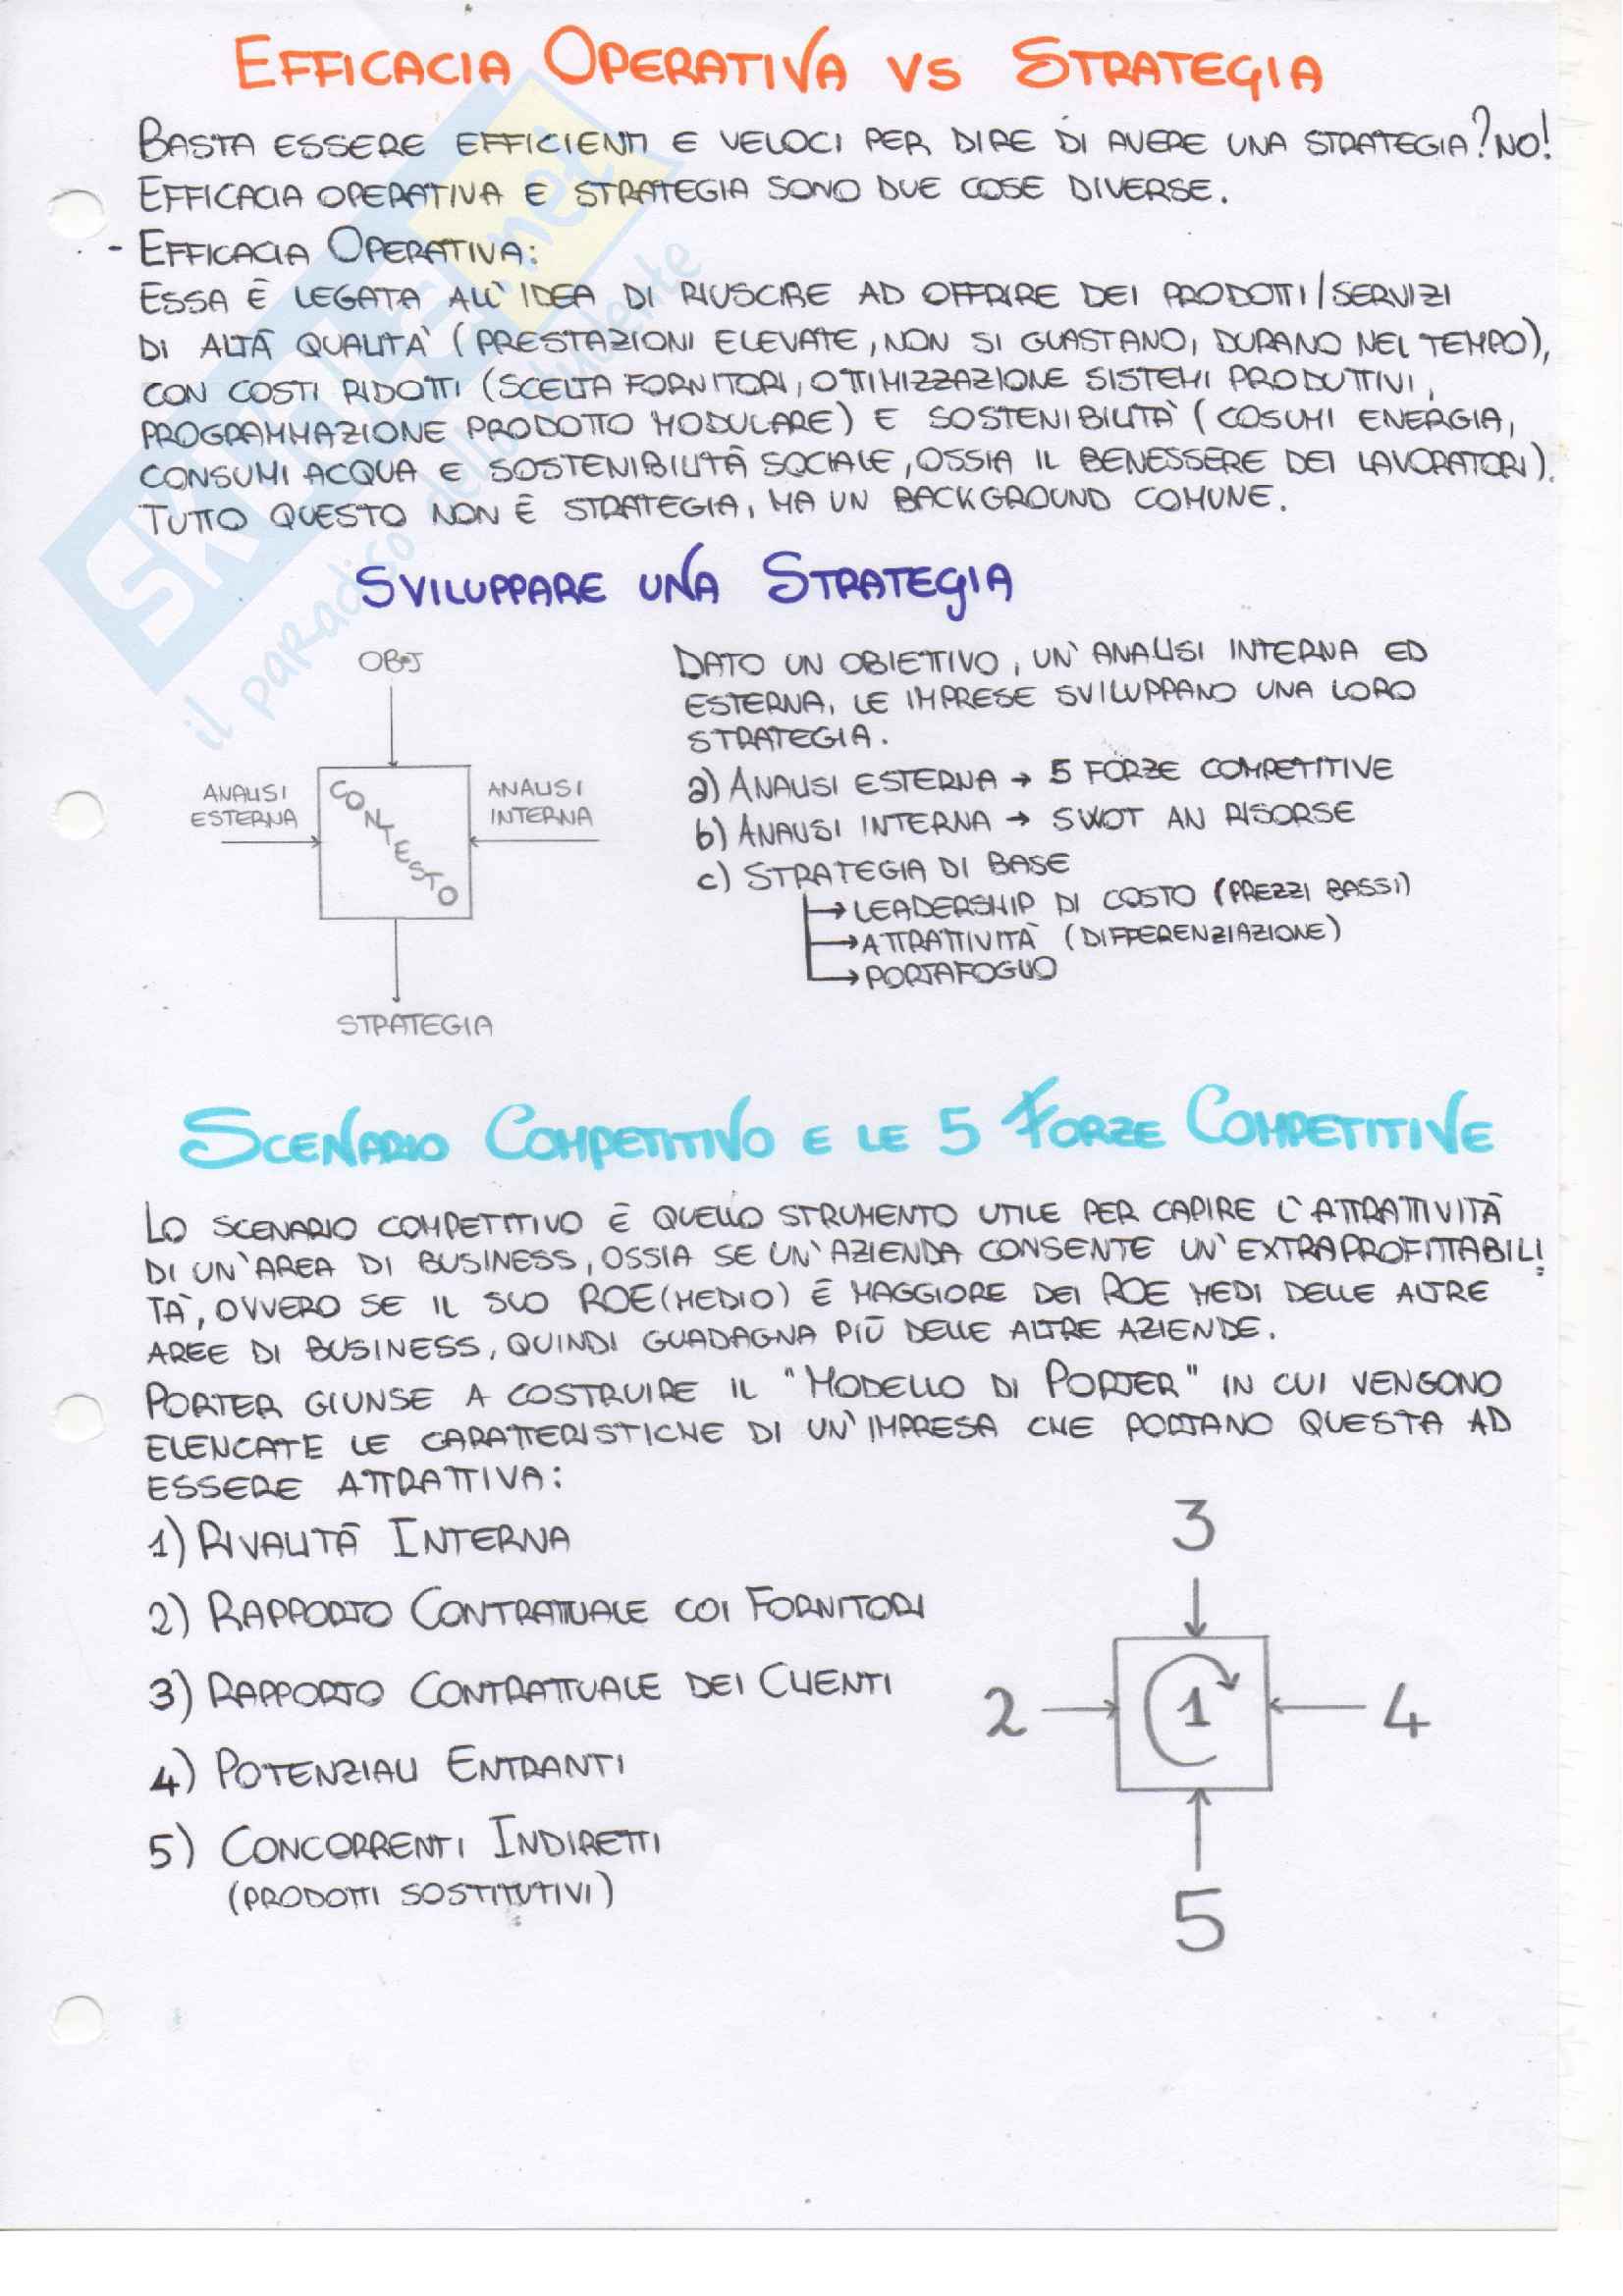 EFFICACIA OPERATIVA VS STRATEGIA
BASTA ESSERE EFFICIENTI E VELOCI PER DIRE DI AVERE UNA STRATEGIA? NO!
EFFICACIA OPERATIVA E STRATEGIA SONO DUE COSE DIVERSE.
- EFFICACIA OPERATIVA:
ESSA È LEGATA ALL'IDEA DI RIUSCIRE AD OFFRIRE DEI PRODOTTI/SERVIZI
DI ALTA QUALITA' (PRESTAZIONI ELEVATE, NON SI GUASTANO, DURANO NEL TEMPO),
CON COSTI RIDOTTI (SCELTA FORNITORI, OTTIMIZZAZIONE SISTEMI PRODUTTIVI,
PROGRAMMAZIONE PRODOTTO MODULARE) E SOSTENIBILITÀ (COSUMI ENERGIA,
CONSUMI ACQUA E SOSTENIBILITÀ SOCIALE, OSSIA IL BENESSERE DEI LAVORATORI).
TUTTO QUESTO NON È STRATEGIA, MA UN BACKGROUND COMUNE.
SKUOLA.net
il paradiso dello studente
SVILUPPARE UNA STRATEGIA
OBJ
ANALISI
ESTERNA
CONTESTO
ANALISI
INTERNA
STRATEGIA
DATO UN OBIETTIVO, UN'ANALISI INTERNA ED
ESTERNA, LE IMPRESE SVILUPPANO UNA LORO
STRATEGIA.
a) ANALISI ESTERNA → 5 FORZE COMPETITIVE
b) ANALISI INTERNA → SWOT AN RISORSE
c) STRATEGIA DI BASE
→ LEADERSHIP DI COSTO (PREZZI BASSI)
→ ATTRATTIVITÀ (DIFFERENZIAZIONE)
→ PORTAFOGLIO
SCENARIO COMPETITIVO E LE 5 FORZE COMPETITIVE
LO SCENARIO COMPETITIVO È QUELLO STRUMENTO UTILE PER CAPIRE L'ATTRATTIVITÀ
DI UN'AREA DI BUSINESS, OSSIA SE UN'AZIENDA CONSENTE UN'EXTRAPROFITTABILI=
TÀ, OVVERO SE IL SUO ROE (MEDIO) È MAGGIORE DEI ROE MEDI DELLE ALTRE
AREE DI BUSINESS, QUINDI GUADAGNA PIÙ DELLE ALTRE AZIENDE.
PORTER GIUNSE A COSTRUIRE IL "MODELLO DI PORTER" IN CUI VENGONO
ELENCATE LE CARATTERISTICHE DI UN'IMPRESA CHE PORTANO QUESTA AD
ESSERE ATTRATTIVA:
1) RIVALITÀ INTERNA
2) RAPPORTO CONTRATTUALE COI FORNITORI
3) RAPPORTO CONTRATTUALE DEI CLIENTI
4) POTENZIALI ENTRANTI
5) CONCORRENTI INDIRETTI
(PRODOTTI SOSTITUTIVI)
3
2
1
4
5